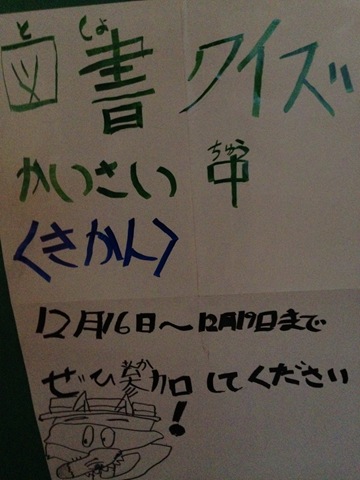 としょ
図書クイズ
ちゅう
かいさい中
<きかん>
12月16日～12月19日まで
さんか
ぜひ参加してください!